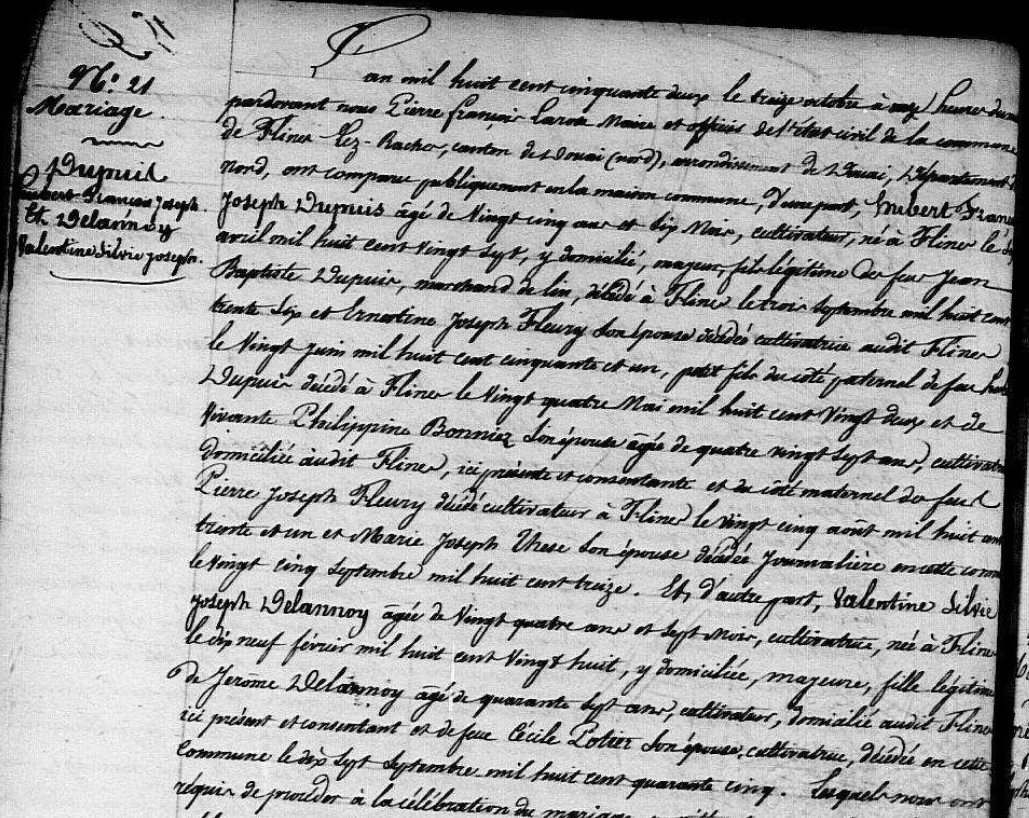 N.° 21
Mariage.
Dupuis
hubert François joseph.
Et Delannoy
Valentine Silvie joseph.
L'an mil huit cent cinquante deux le treize octobre à onze heures du
pardevant nous Pierre françois Maire et officier de l'état civil de la commune
de Flines lez-Raches, canton de Douai (nord), arrondissement de Douai, Département
nord, ont comparu publiquement en la maison commune, D'une part, hubert
Joseph Dupuis âgé de Vingt cinq ans et Six Mois, cultivateur, né à Flines le
avril mil huit cent Vingt Sept, y domicilié, majeur, fils légitime de feu Jean
Baptiste Dupuis, marchand de lin, décédé à Flines le trois Septembre mil huit cent
trente Six et Ernestine Joseph Fleury Son épouse décédé cultivatrice audit Flines
le Vingt juin mil huit cent cinquante et un, petit fils du côté paternel de feu
Dupuis décédé à Flines le Vingt quatre Mai mil huit cent Vingt deux et de
Vivante Philippine Bonniez Son épouse âgée de quatre vingt Sept ans, cultivatrice
domiciliée audit Flines, ici présente et consentante et du côté maternel de feu
Pierre Joseph Fleury décédé cultivateur à Flines le Vingt cinq août mil huit cent
trente et un et Marie Joseph Son épouse décédée journalière en cette
le Vingt cinq Septembre mil huit cent treize. Et, d'autre part, Valentine Silvie
joseph Delannoy âgée de Vingt quatre ans et Sept Mois, cultivatrice, née à Flines
le dix neuf février mil huit cent Vingt huit, y domiciliée, majeure, fille légitime
de Jerome Delannoy âgé de quarante Sept ans, cultivateur, domicilié audit Flines
ici présent et consentant et de feue Cécile Potier Son épouse, cultivatrice, décédée en cette
Commune le dix Sept Septembre mil huit cent quarante cinq. Lesquels nous ont
requis de procéder à la célébration du mariage